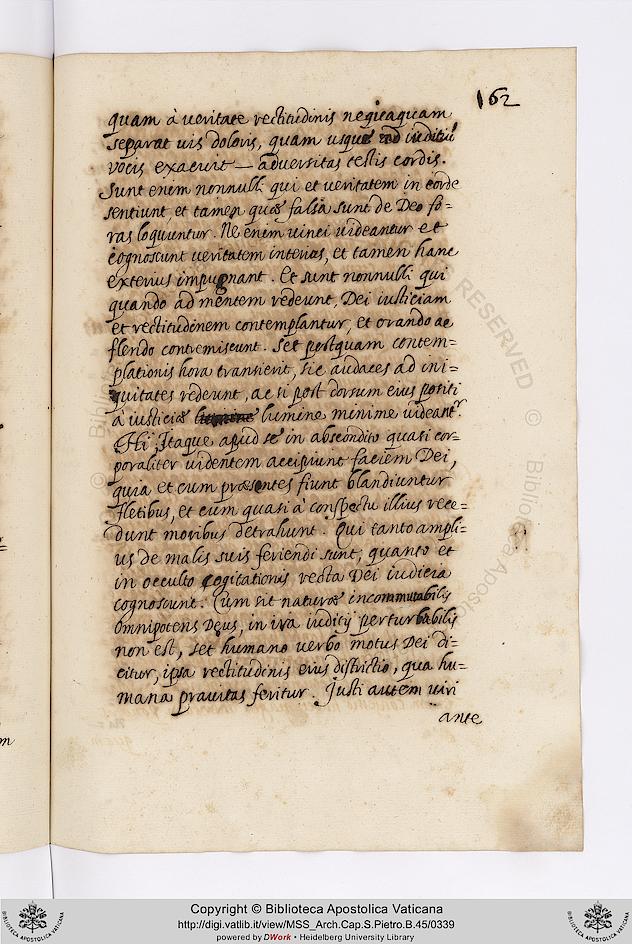 162
quam à veritate rectitudinis nequaquam
separat vis doloris, quam usque ad iuditiū
vocis exacuit — adversitas testis cordis.
Sunt enim nonnulli qui et veritatem in corde
sentiunt et tamen quæ falsa sunt de Deo fo=
ras loquuntur. Ne enim vinci videantur et
cognoscunt veritatem interius, et tamen hanc
exterius impugnant. Et sunt nonnulli qui
quando ad mentem redeunt, Dei iusticiam
et rectitudinem contemplantur, et orando ac
flendo contremiscunt. Set postquam contem=
plationis hora transierit, sic audaces ad ini=
quitates redeunt, ac si post dorsum eius positi
à iusticiæ lumine minime videant.r
Hi Itaque apud se in abscondito quasi cor=
poraliter videntem accipiunt faciem Dei,
quia et cum præsentes fiunt blandiuntur
fletibus, et cum quasi à conspectu illius rece=
dunt moribus detrahunt. Qui tanto ampli=
us de malis suis feriendi sunt, quanto et
in occulto cogitationis recta Dei iudicia
cognoscunt. Cum sit naturæ incommutabilis
omnipotens Deus, in ira iuditij perturbabilis
non est, set humano verbo motus Dei di=
citur, ipsa rectitudinis eius districtio, qua hu=
mana pravitas feritur. Justi autem viri
ante
RESERVED © Biblioteca Apostolica
Copyright © Biblioteca Apostolica Vaticana
http://digi.vatlib.it/view/MSS_Arch.Cap.S.Pietro.B.45/0339
powered by DWork • Heidelberg University Library